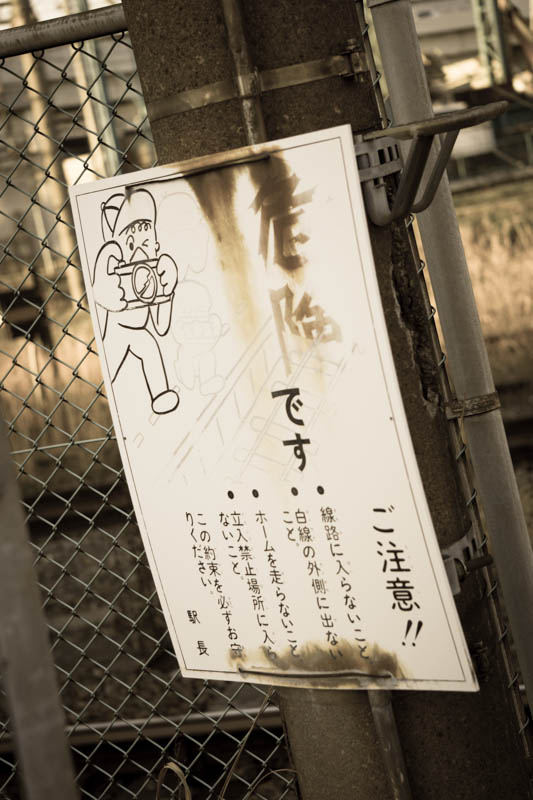 危険です
ご注意!!
●線路に入らないこと
●白線の外側に出ない
こと。
●ホームを走らないこと
●立入禁止場所に入ら
ないこと。
この約束を必ずお守
りください。
駅長